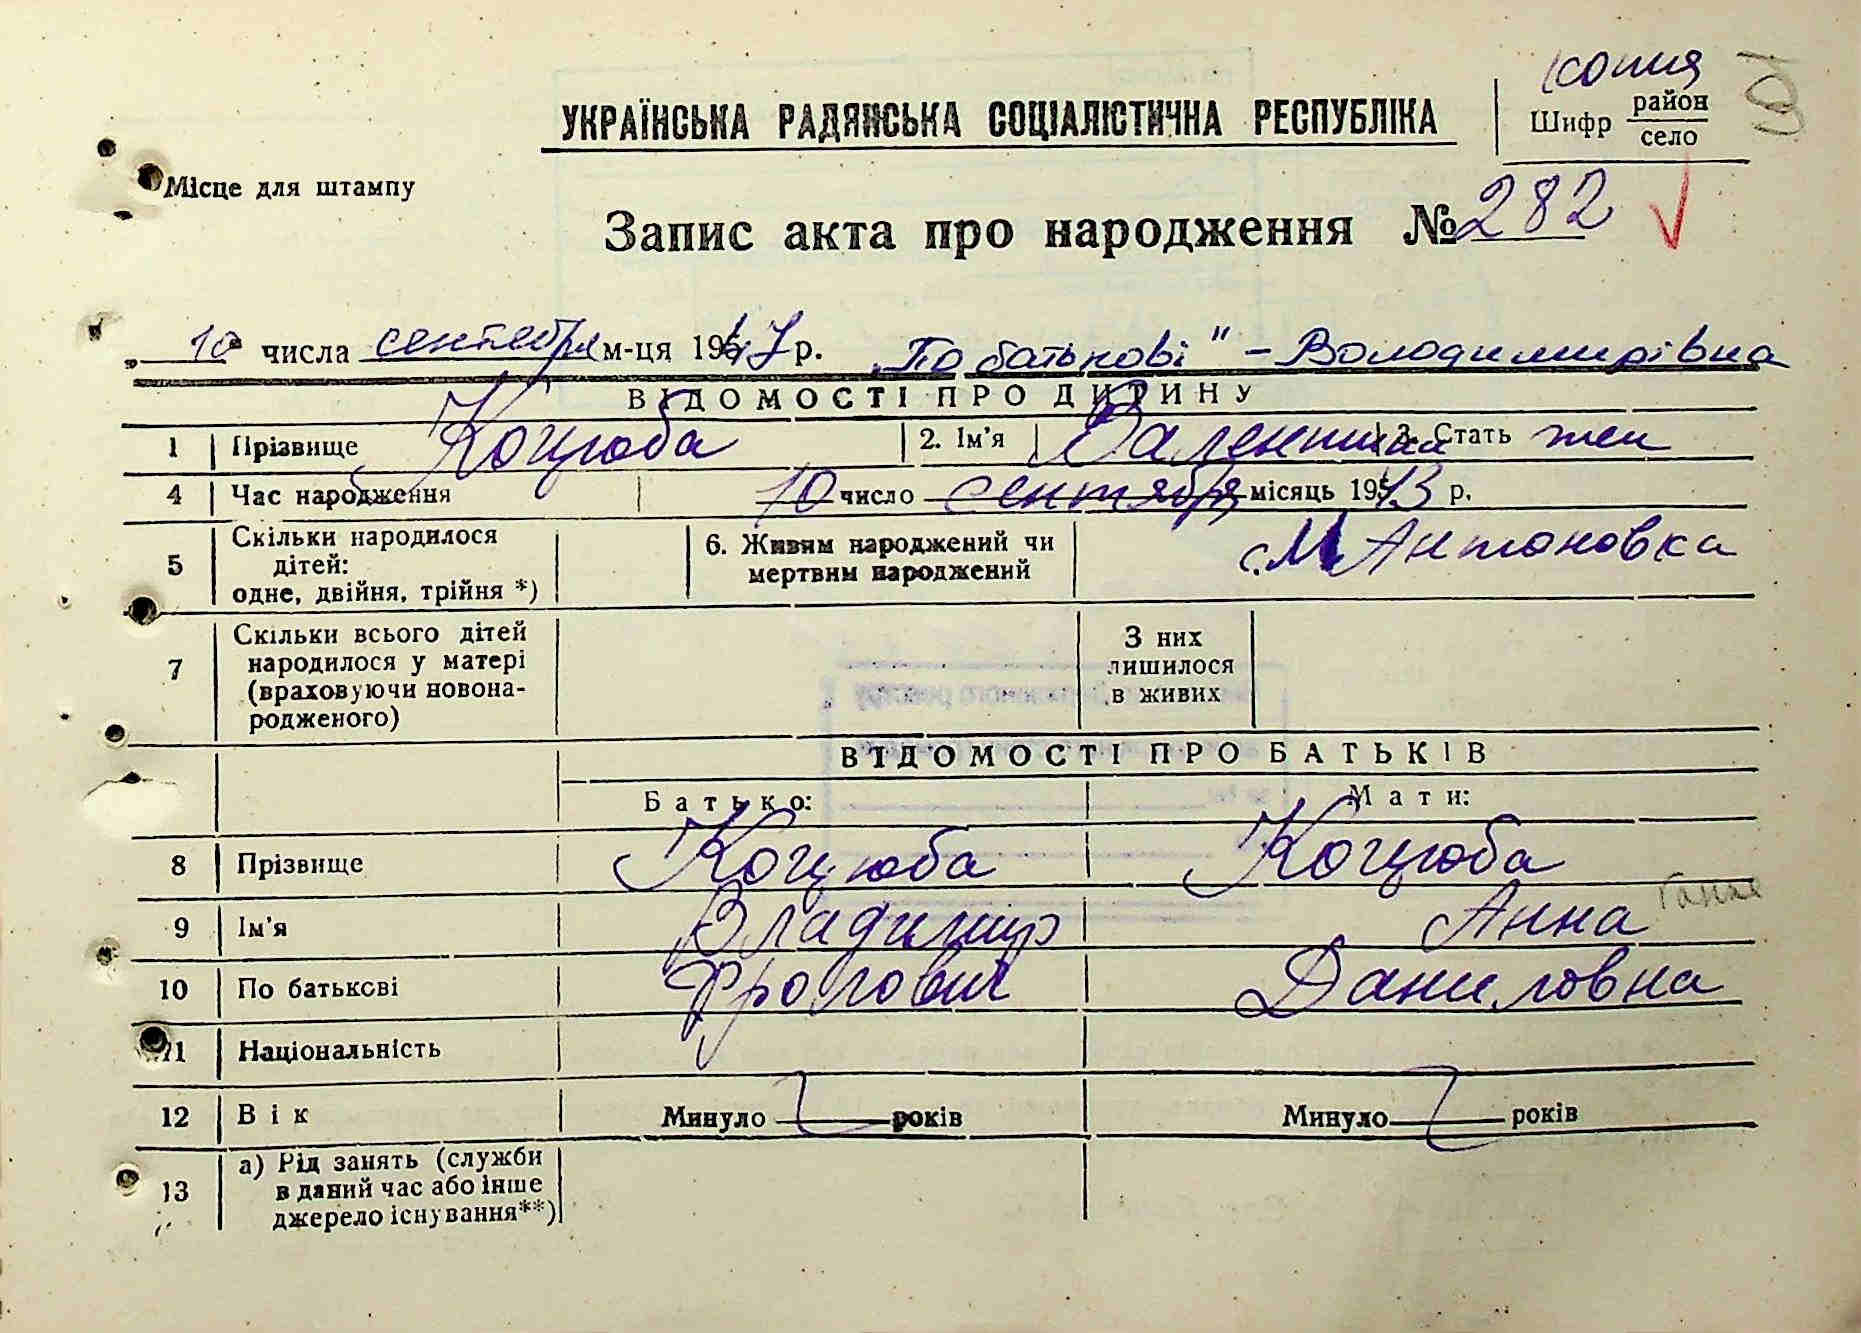 копия
УКРАЇНСЬКА РАДЯНСЬКА СОЦІАЛІСТИЧНА РЕСПУБЛІКА
Шифр район
село
Місце для штампу
Запис акта про народження № 282
„ 10 " числа сентября м-ця 1947 р. „По батькові" – Володимирівна
ВІДОМОСТІ ПРО ДИТИНУ
1 Прізвище Коцюба 2. Ім'я Валентина 3. Стать жен
4 Час народження 10 число сентября місяць 1943 р.
5 Скільки народилося дітей: одне, двійня, трійня *) 6. Живим народжений чи мертвим народжений с. М Антоновка
7 Скільки всього дітей народилося у матері (враховуючи новонародженого) З них лишилося в живих
ВІДОМОСТІ ПРО БАТЬКІВ
Батько: Мати:
8 Прізвище Коцюба Коцюба
9 Ім'я Владимир Анна Ганна
10 По батькові Фролович Даниловна
11 Національність
12 Вік Минуло років Минуло років
13 а) Рід занять (служби в даний час або інше джерело існування**)